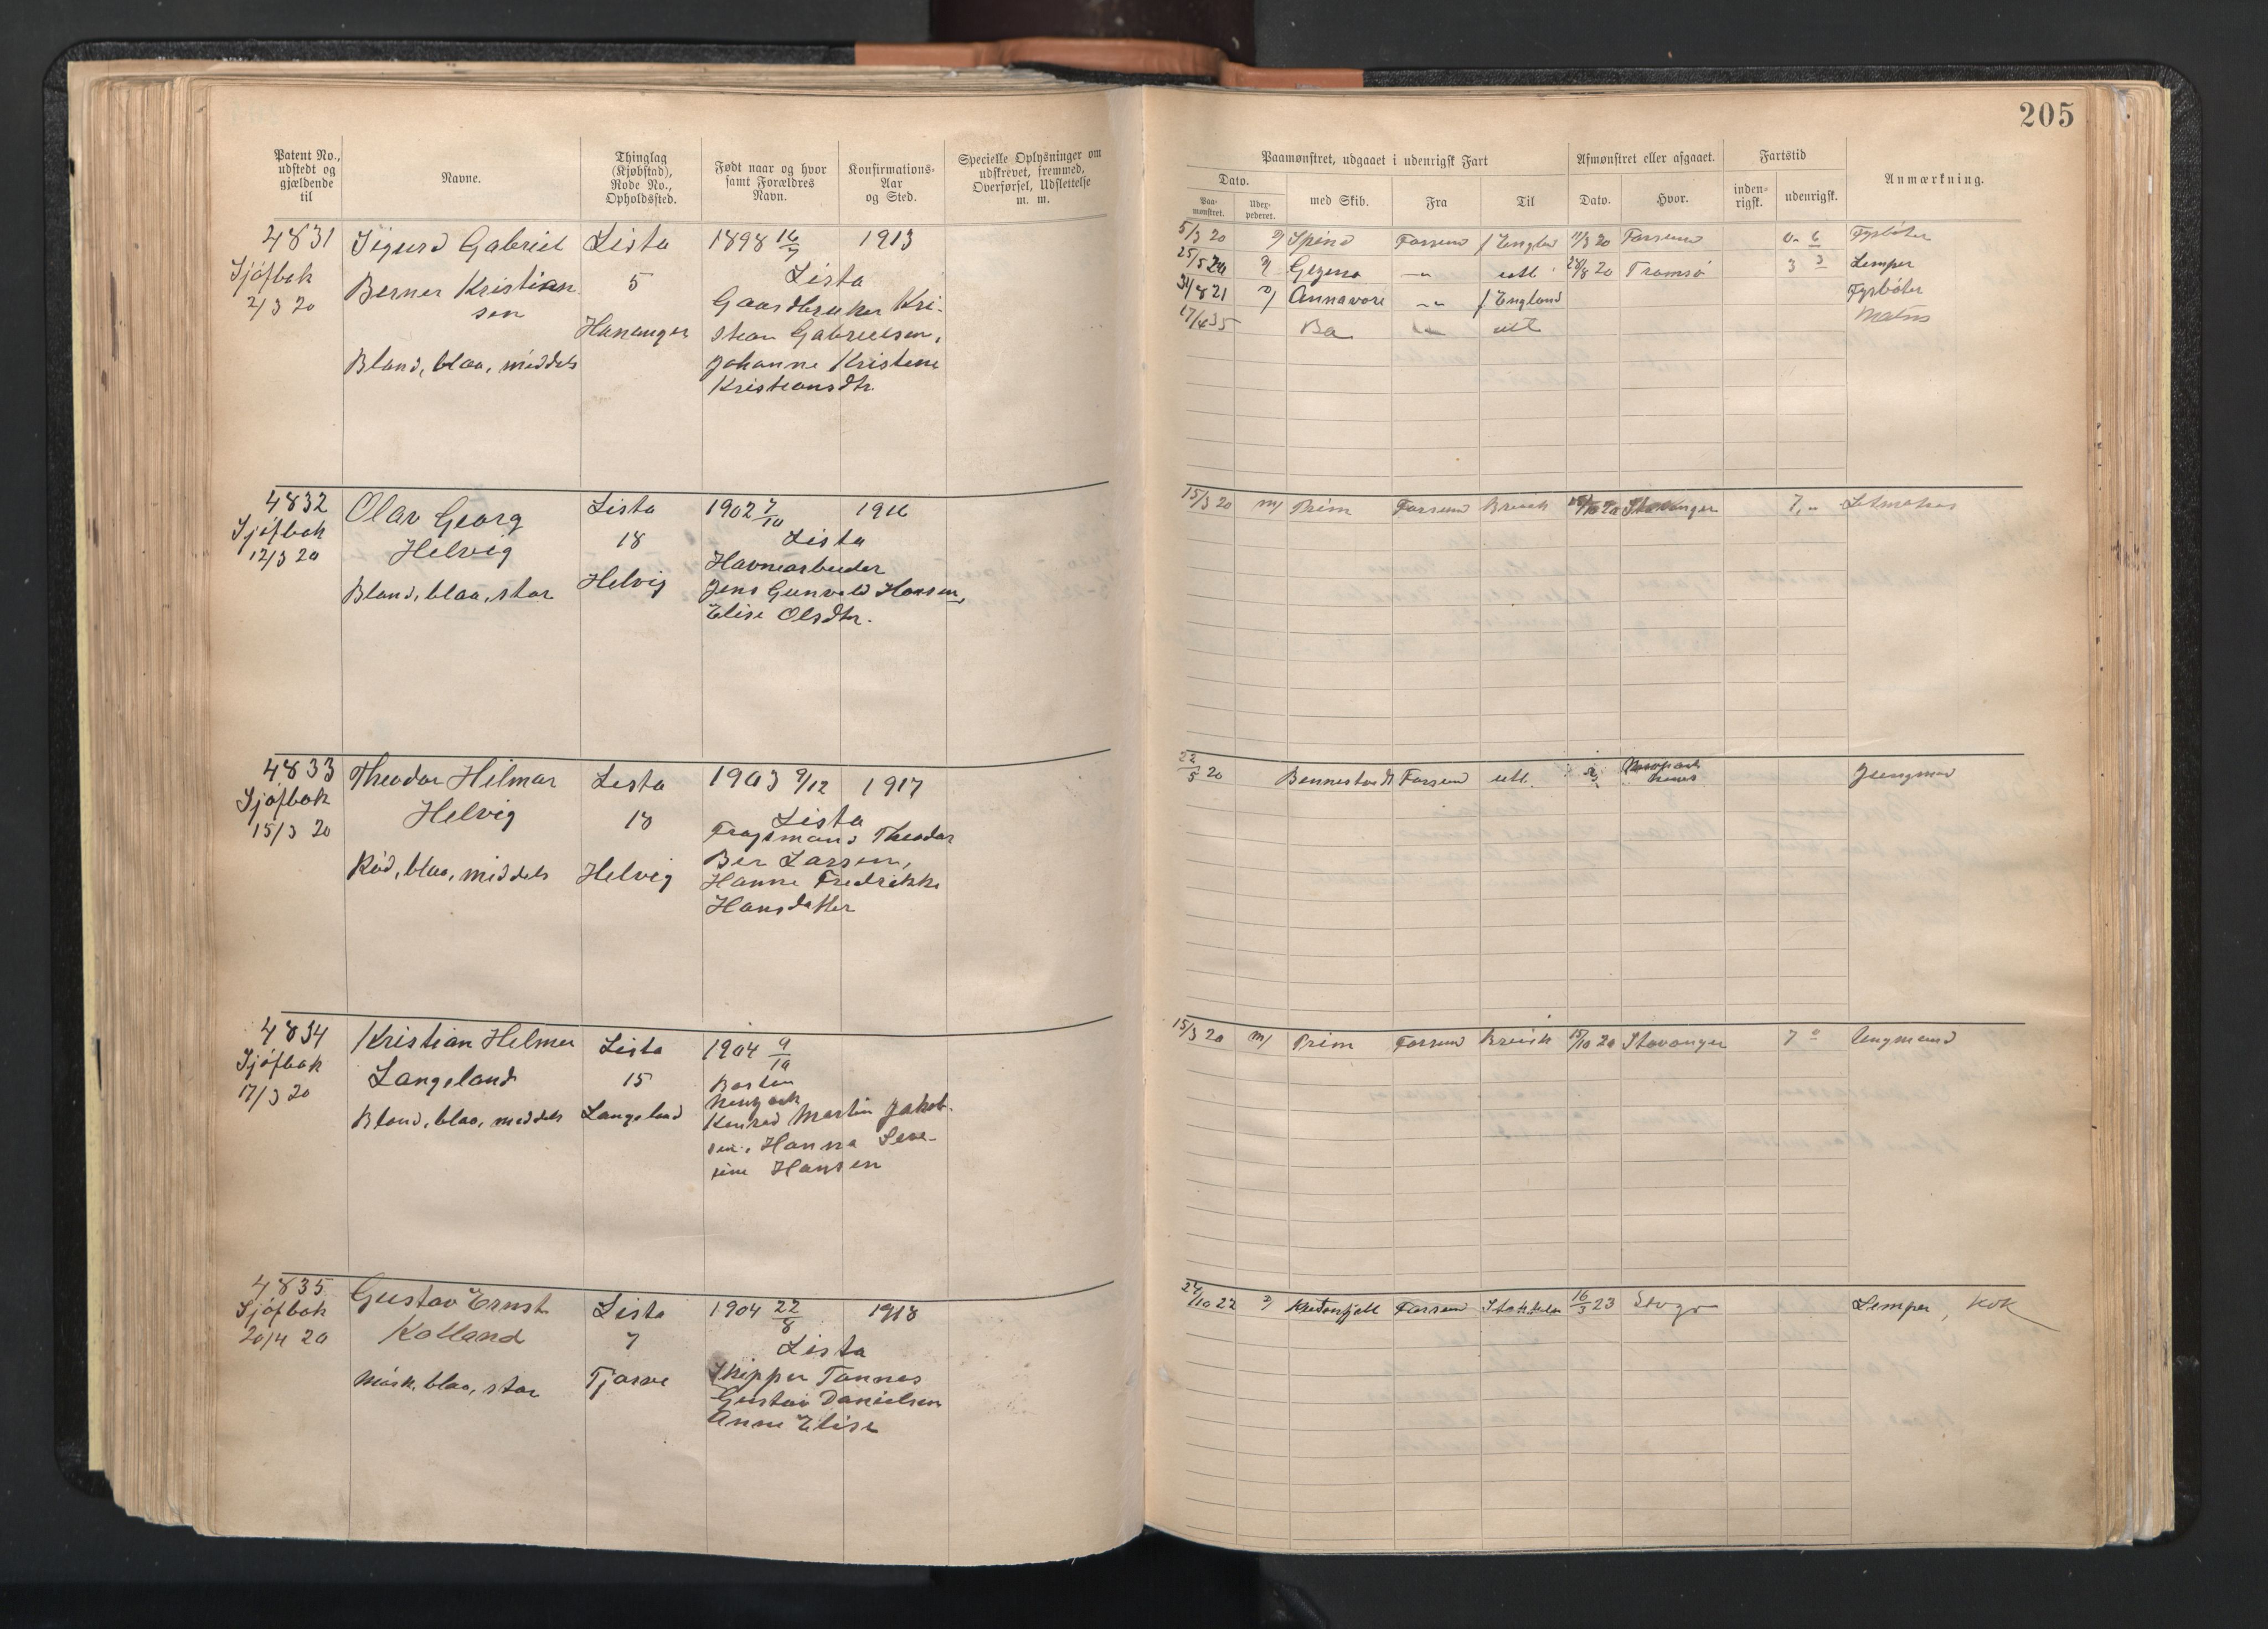 205
Patent No., udstedt og gjældende til
Navne.
Thinglag (Kjøbstad), Rode No., Opholdssted.
Født naar og hvor samt Forældres Navn.
Konfirmations-Aar og Sted.
Specielle Oplysninger om udskrevet, fremmed, Overførsel, Udslettelse m. m.
Paamønstret, udgaaet i udenrigsk Fart
Afmønstret eller afgaaet.
Fartstid
Anmærkning.
Dato.
Paa-mønstret.
Udex-pederet.
med Skib.
Fra
Til
Dato.
Hvor.
inden-rigsk.
udenrigsk.
4831 Sigurd Gabriel Lista 1898 16/7 1913
Sjøfbok Berner Kristian 5 Lista
2/3 20 sen Gaardbruker Kri-
Hananger stian Gabrielsen,
Blond, blaa, middels Johanne Kristine
Kristiansdtr.
5/3 20 Spind Farsund f England 11/3 20 Farsund 0 - 6 Fyrbøter
25/5 20 Gezina -"- utl 28/8 20 Tromsø 3 3 Lemper
31/8 21 Annavore -"- f England Fyrbøter
17/4 35 Ba -"- utl Matros
4832 Olav Georg Lista 1902 7/10 1916
Sjøfbok Helvig 18 Lista
12/3 20 Havnearbeider
Blond, blaa, stor Helvig Jens Gunvald Hansen,
Elise Olsdtr.
15/3 20 m/ Prim Farsund Brevik 15/10 20 Stavanger 7, "
4833 Theodor Hilmar Lista 1903 9/12 1917
Sjøfbok Helvig 18 Lista
15/3 20 Fragtmand Theodor
Rød, blaa, middels Helvig Ber Larsen,
Hanne Fredrikke
Hansdatter
22/5 20 Bennestvedt Farsund utl. Jungmand
4834 Kristian Helmer Lista 1904 9/10
Sjøfbok Langeland 15
17/3 20 Newyork
Blond, blaa, middels Langeland Konrad Martin Jakob-
sen, Hanna Seve-
rine Hansen
15/3 20 m/ Prim Farsund Brevik 15/10 20 Stavanger 7 0 Ungmand
4835 Gustav Ernst Lista 1904 22/8 1918
Sjøfbok Kalland 7 Lista
20/4 20 Skipper Tønnes
Mørk, blaa, stor Tjørve Gustav Danielsen
Anne Elise
/10 22 Farsund 16/3 23 Lemper, Kok